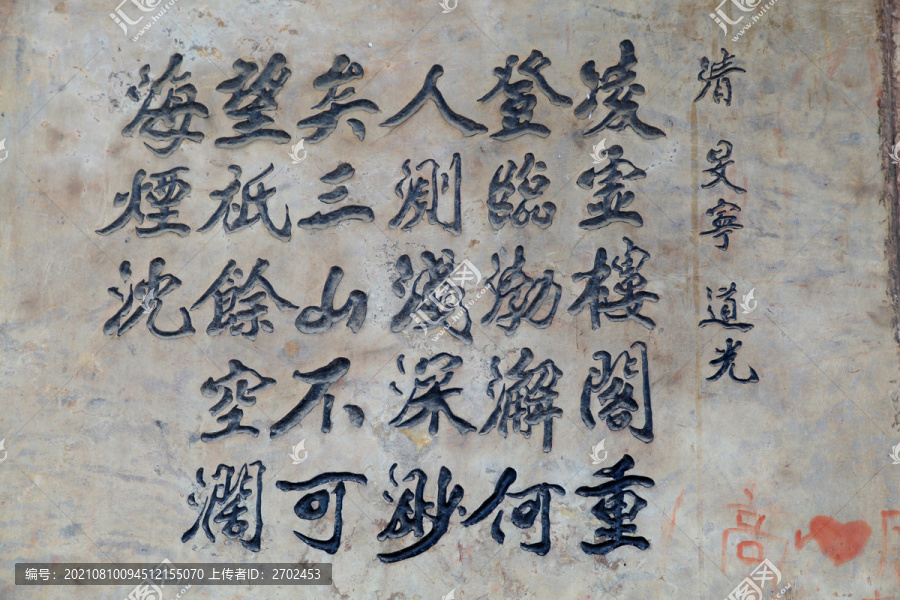 清 旻寧 道光
凌虛樓閣重
登臨渤澥何
人測淺深渺
矣三山不可
望祇餘空濶
海煙沈
高
编号：20210810094512155070 上传者ID：2702453